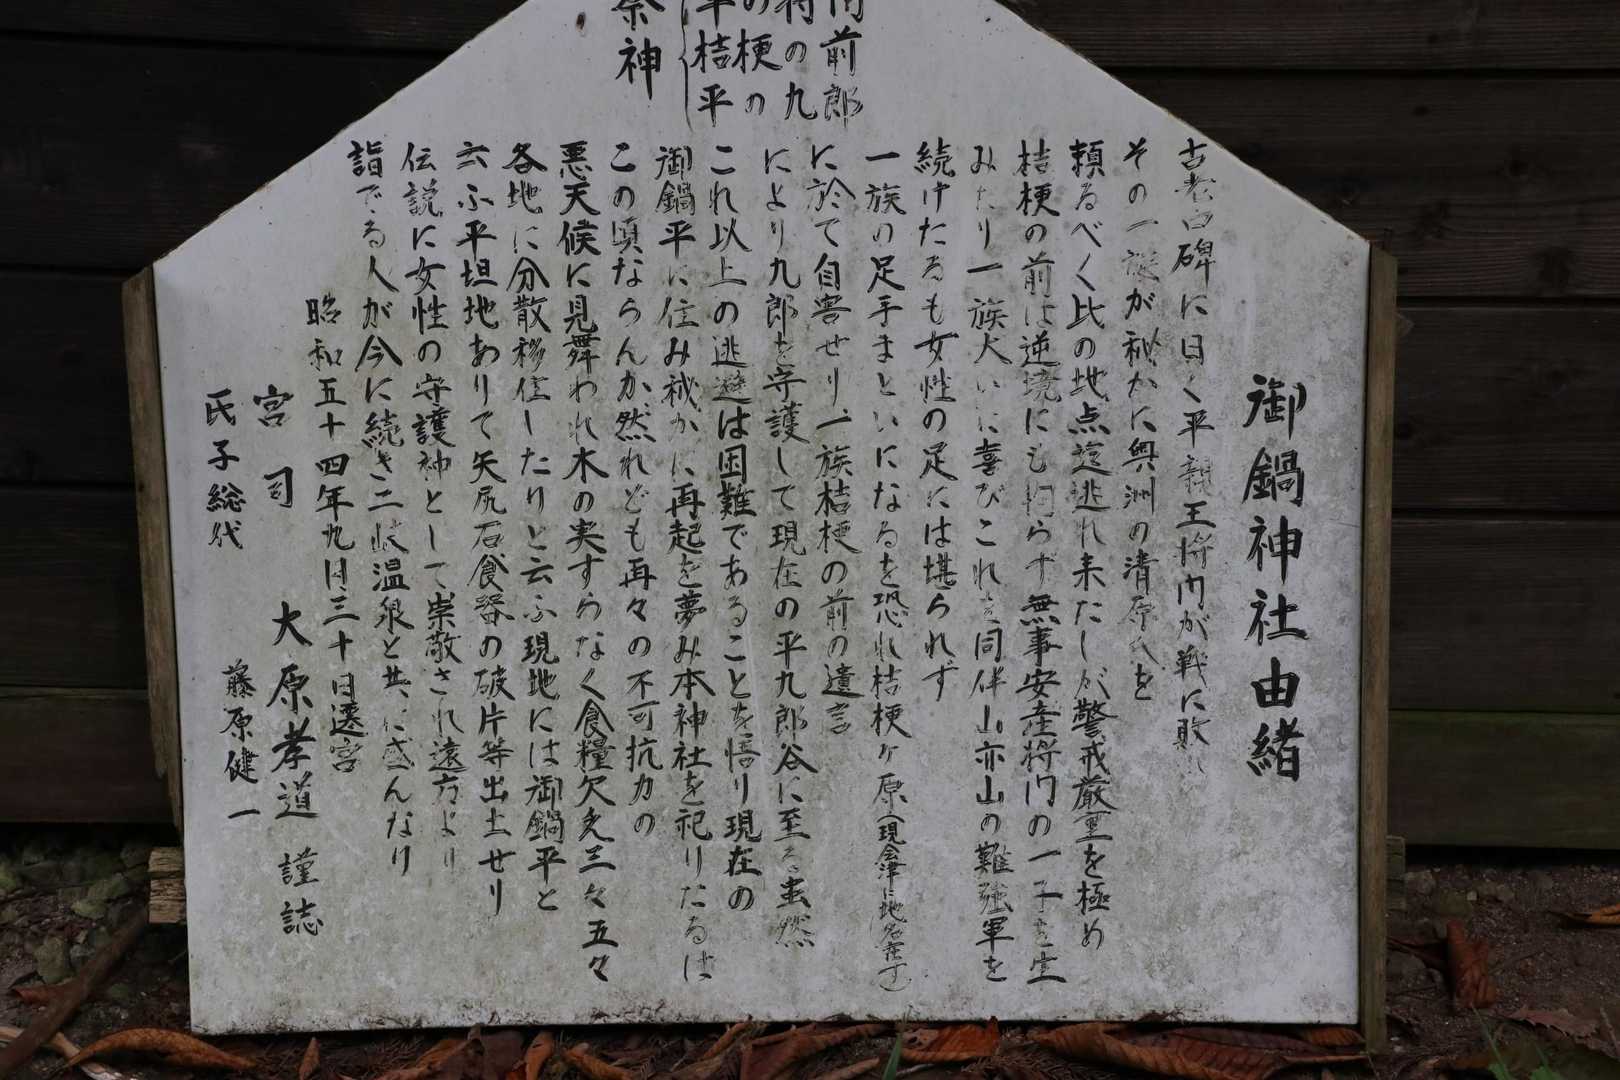 御鍋神社由緒
古老口碑に曰く平親王将門が戦に敗れ
その一族が秘かに奥洲の清原氏を
頼るべく比の地点迄逃れ来たしが警戒厳重を極め
桔梗の前は逆境にも拘らず無事安産将門の一子を生
みたり一族大いに喜びこれを同伴山亦山の難強軍を
続けたるも女性の足には堪られず
一族の足手まといになるを恐れ桔梗ヶ原(現会津に地名在す)
に於て自害せり一族桔梗の前の遺言
により九郎を守護して現在の平九郎谷に至る 然
これ以上の逃避は困難であることを悟り現在の
御鍋平に住み秘かに再起を夢み本神社を祀りたるは
この頃ならんか然れども再々の不可抗力の
悪天候に見舞われ木の実すらなく食糧欠乏三々五々
各地に分散移住したりと云ふ現地には御鍋平と
云ふ平坦地ありて矢尻石食器の破片等出土せり
伝説に女性の守護神として崇敬され遠方より
詣でる人が今に続き二岐温泉と共に盛んなり
昭和五十四年九月三十日遷宮
宮司 大原孝道 謹誌
氏子総代 藤原健一
門前郎
将の九
の梗の
平桔平
祭神